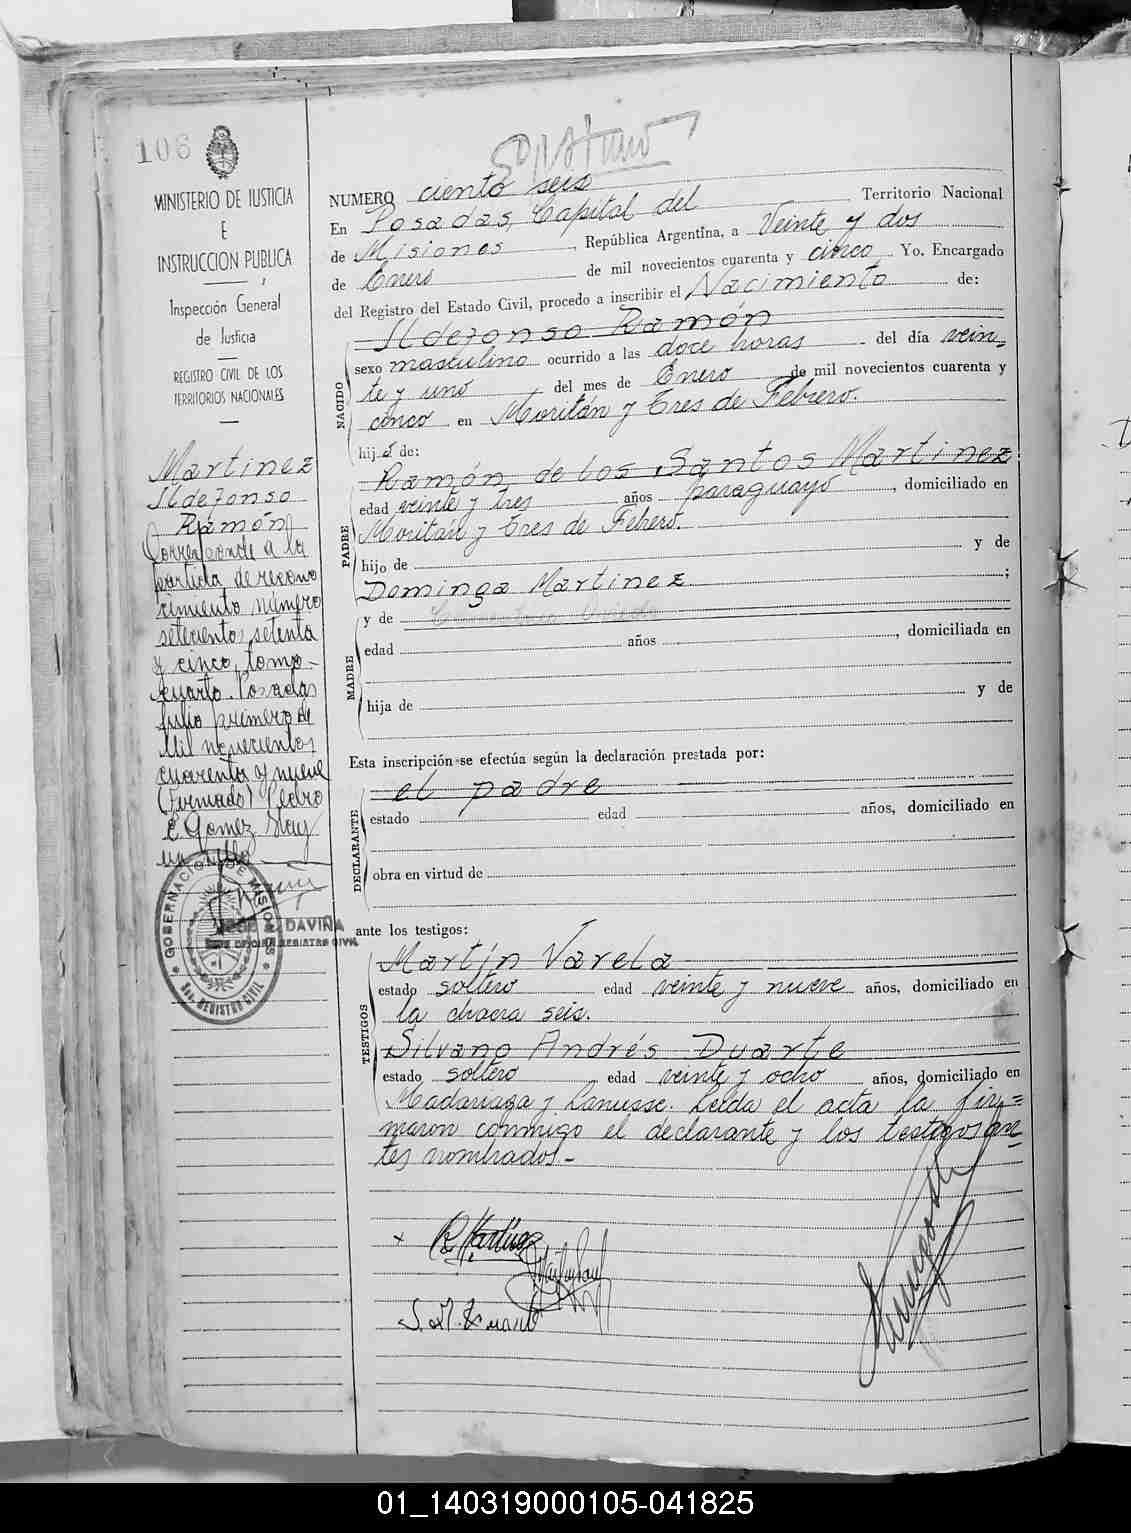 106
MINISTERIO DE JUSTICIA
E
INSTRUCCION PUBLICA
Inspección General
de Justicia
REGISTRO CIVIL DE LOS
TERRITORIOS NACIONALES
Martinez
Ildefonso
Ramón
Corresponde a la
partida de recono
cimiento número
setecientos setenta
y cinco, tomo
cuarto. Posadas
julio primero de
mil novecientos
cuarenta y nueve
(Firmado) Pedro
E. Gomez. Hay
un sello
GOBERNACION DE MISIONES
REGISTRO CIVIL
DAVIÑA
REGISTRO CIVIL
NUMERO ciento seis
En Posadas, Capital del Territorio Nacional
de Misiones, República Argentina, a Veinte y dos
de Enero de mil novecientos cuarenta y cinco Yo, Encargado
del Registro del Estado Civil, procedo a inscribir el Nacimiento de:
NACIDO
Ildefonso Ramón
sexo masculino ocurrido a las doce horas del día vein=
te y uno del mes de Enero de mil novecientos cuarenta y
cinco en Moritán y Tres de Febrero.
hijo de:
PADRE
Ramón de los Santos Martinez
edad veinte y tres años paraguayo, domiciliado en
Moritán y Tres de Febrero.
hijo de y de
Dominga Martinez ;
MADRE
y de
edad años, domiciliada en
hija de y de
Esta inscripción se efectúa según la declaración prestada por:
DECLARANTE
el padre
estado edad años, domiciliado en
obra en virtud de
ante los testigos:
TESTIGOS
Martín Varela
estado soltero edad veinte y nueve años, domiciliado en
la chacra seis.
Silvano Andrés Duarte
estado soltero edad veinte y ocho años, domiciliado en
Madariaga y Lanusse. Leída el acta la fir=
maron conmigo el declarante y los testigos an=
tes nombrados.-
R. Martinez
01_140319000105-041825